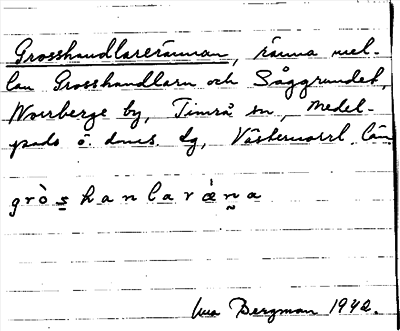 Grosshandlarerännan, ränna mel-
lan Grosshandlarn och Såggrundet,
Norrberge by, Timrå sn, Medel-
pads ö. doms. dg, Västernorrl. län.
gròs̱hanlaræ̀n̰a
Bergman 1942.